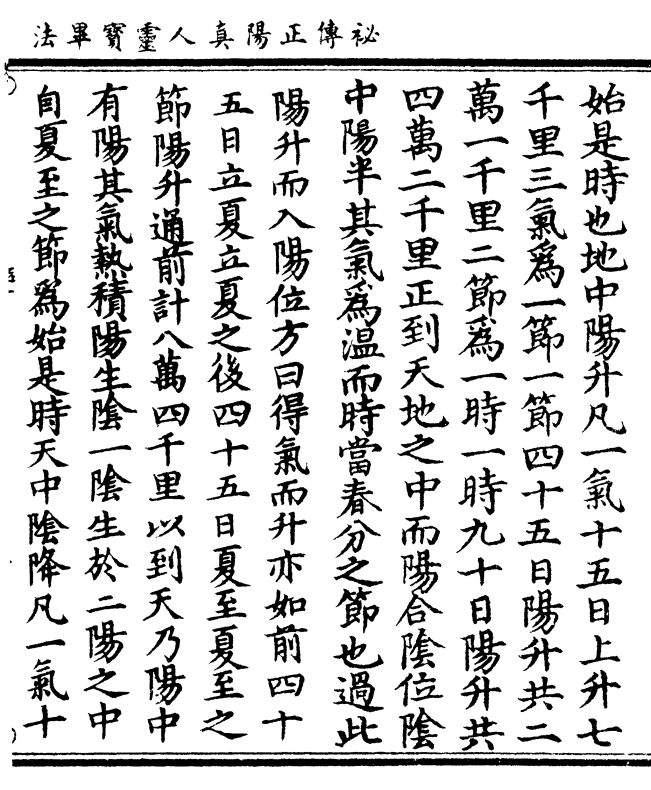 祕傳正陽真人靈寶畢法
始是時也地中陽升凡一氣十五日上升七
千里三氣爲一節一節四十五日陽升共二
萬一千里二節爲一時一時九十日陽升共
四萬二千里正到天地之中而陽合陰位陰
中陽半其氣爲温而時當春分之節也過此
陽升而入陽位方曰得氣而升亦如前四十
五日立夏立夏之後四十五日夏至夏至之
節陽升通前計八萬四千里以到天乃陽中
有陽其氣熱積陽生陰一陰生於二陽之中
自夏至之節爲始是時天中陰降凡一氣十